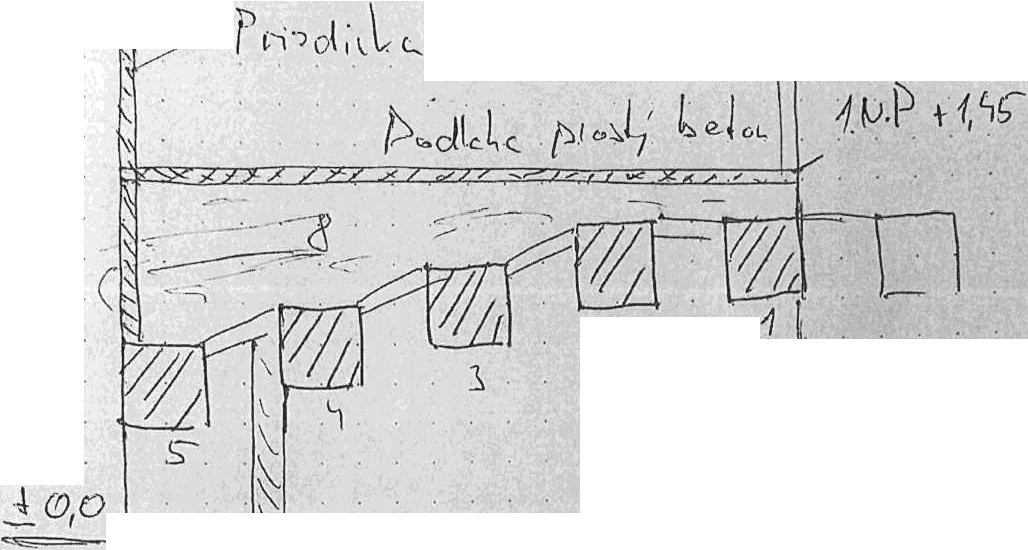 Prizdivka
Podlaha prostý beton
1.N.P + 1,45
8
1
3
4
5
± 0,0